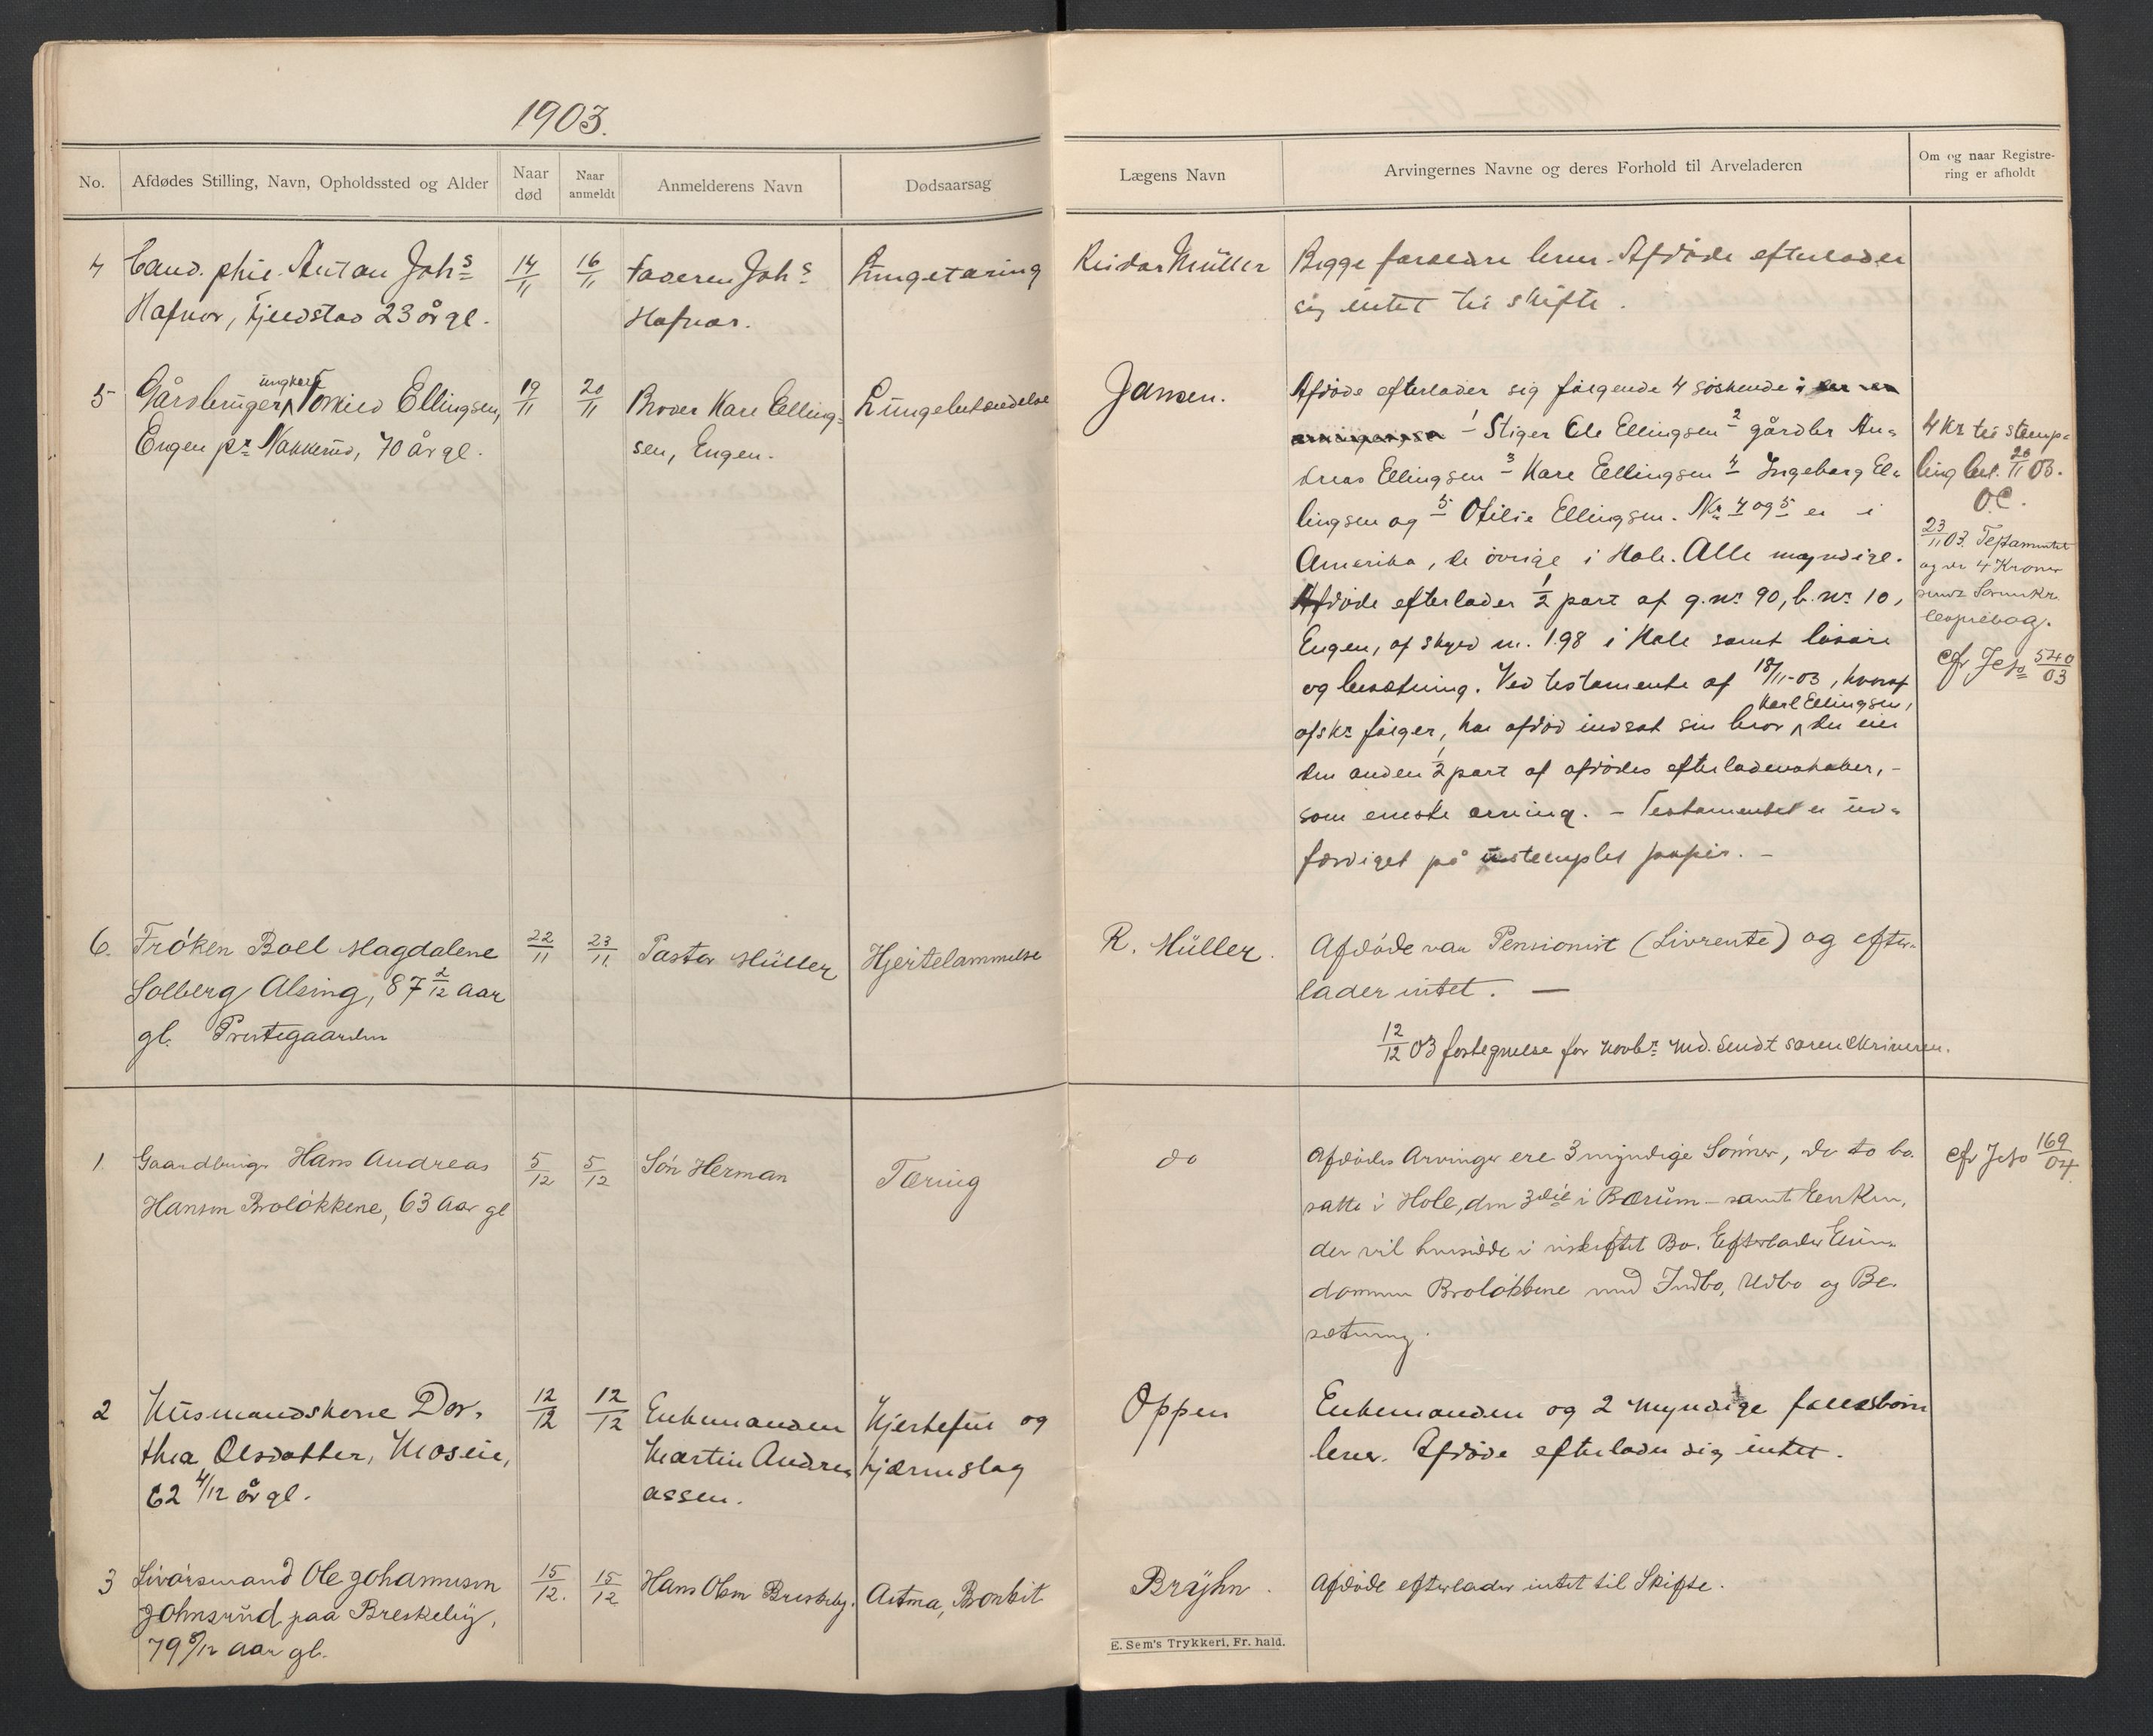 1903.
No.
Afdødes Stilling, Navn, Opholdssted og Alder
Naar død
Naar anmeldt
Anmelderens Navn
Dødsaarsag
Lægens Navn
Arvingernes Navne og deres Forhold til Arveladeren
Om og naar Registre-
ring er afholdt
4 Cand. phil. Anton Johs
Hafnor, Fjeldstad 23 år gl.
14/11
16/11
Faderen Johs
Hafnor.
Lungetæring
Reidar Müller
Begge forældre lever. Afdøde efterlader
sig intet til skifte.
5 Gårdbruger, ungkarl Ellingsen,
Engen pr Nakkerud, 70 år gl.
19/11
20/11
Broder Kare Elling-
sen, Engen.
Lungebetændelse
Jansen.
Afdøde efterlader sig følgende 4 söskende:
1 Stiger Ole Ellingsen 2 gårdbr An-
dreas Ellingsen 3 Kare Ellingsen 4 Ingeborg El-
lingsen og 5 Otilie Ellingsen. Nr 4 og 5 er i
Amerika, de övrige i Hole. Alle myndige.
Afdøde efterlader 1/2 part af g.nr 90, b.nr 10,
Engen, af skyld m. 1.98 i Hole samt lösöre
og besætning. Ved testamente af 18/11-03, hvoraf
afskr følger, har afdød indsat sin bror Karl Ellingsen, der eier
den anden 1/2 part af afdødes efterladenskaber, -
som eneste arving. - Testamentet er ud-
færdiget på ustemplet papir. -
4 Kr til stemp-
ling bet. 20/11 03.
O.C.
23/11 03. Testamentet
og de 4 Kroner
sendt Sorenskr.
Copiebog.
cfr Jno 540/03
6. Frøken Boel Magdalene
Solberg Alsing, 87 2/12 Aar
gl. Prestegaarden
22/11
23/11.
Pastor Müller
Hjertelammelse
R. Müller.
Afdøde var Pensionist (Livrente) og efter-
lader intet. -
12/12 03 fortegnelse for Novbr Md. sendt sorenskriveren.
1 Gaardbruger Hans Andreas
Hansen Broløkkene, 63 Aar gl
5/12
5/12
Søn Herman
Tæring
do
Afdødes Arvinger ere 3 myndige Sønner, de to bo-
satte i Hole, den 3die i Bærum - samt Enken,
der vil hensidde i uskiftet Bo. Efterlader Eien-
dommen Broløkkene med Indbo, Udbo og Be-
sætning.
cfr Jno 169/04.
2 Husmandskone Dor-
thea Olsdatter, Moseie,
62 4/12 år gl.
12/12
12/12
Enkemanden
Martin Andre-
assen.
Hjertefeil og
hjerneslag
Oppen
Enkemanden og 2 myndige fællesbörn
lever. Afdøde efterlader sig intet.
3 Livørsmand Ole Johannesen
Johnsrud paa Breskeby,
79 8/12 Aar gl.
15/12.
15/12
Hans Olsen Breskeby.
Astma, Bronkit
Brüjhn.
Afdøde efterlader intet til Skifte.
E. Sem's Trykkeri, Fr. hald.